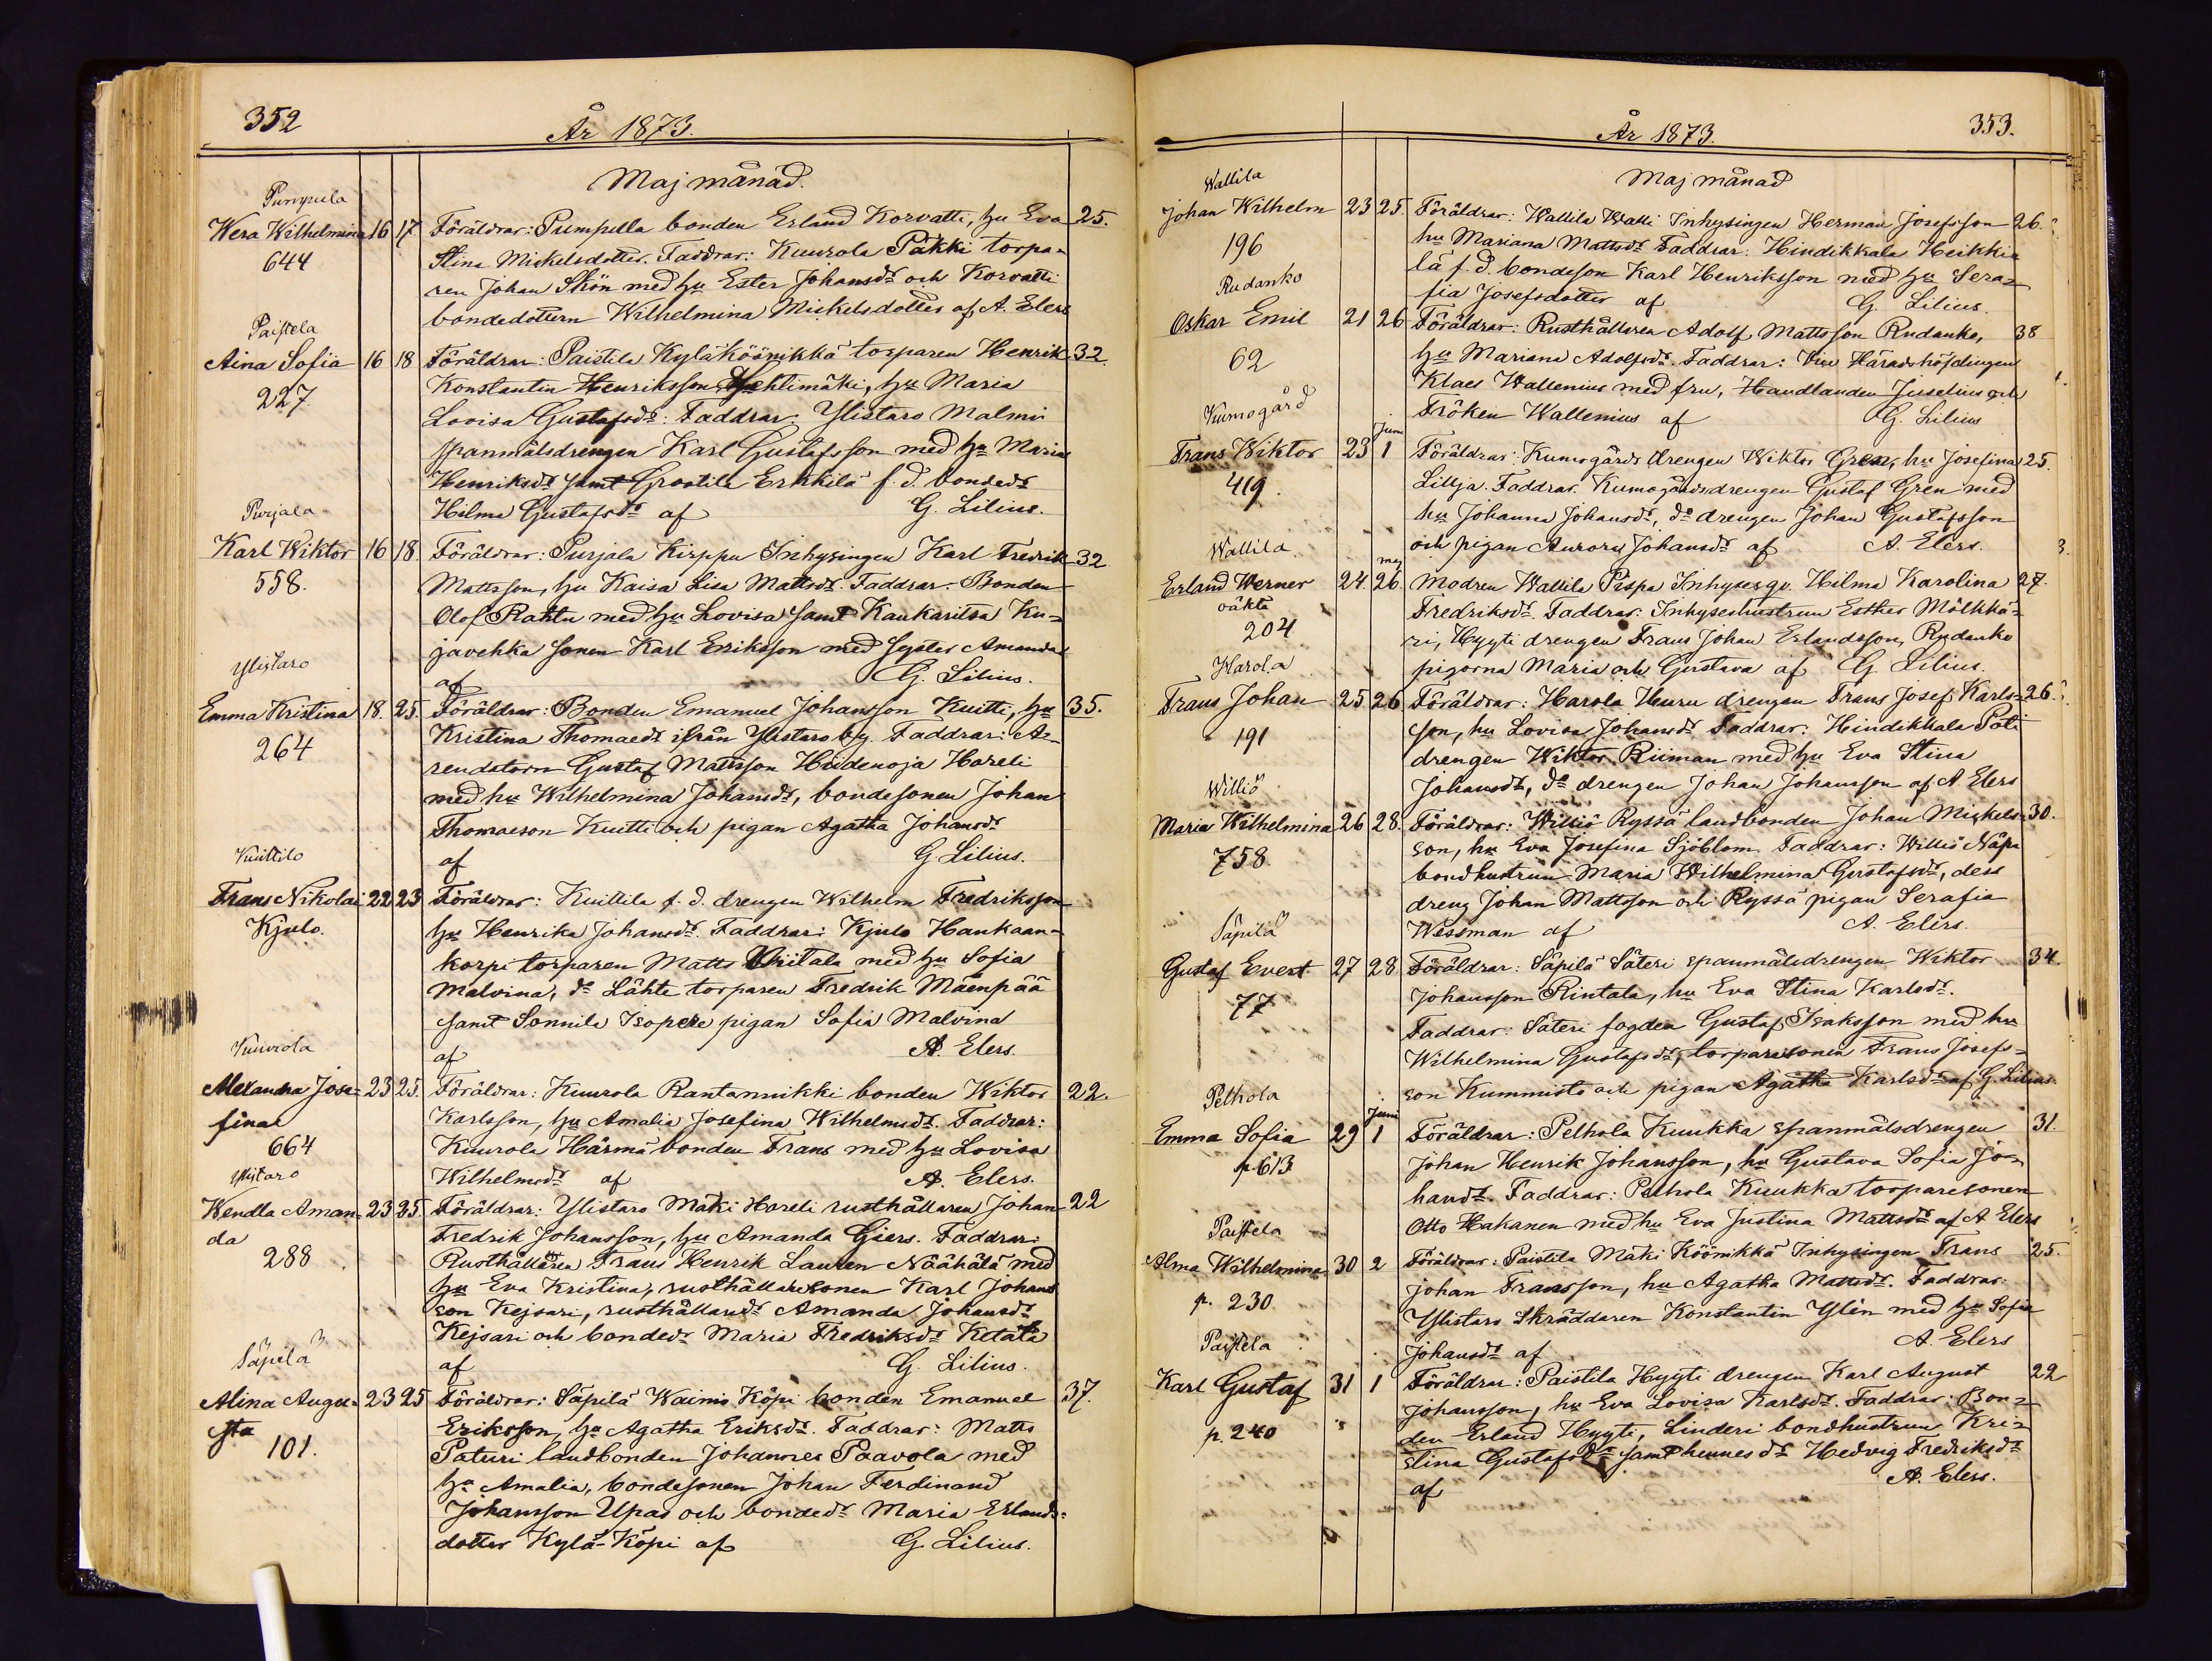 352
År 1873.
Maj månad.
Pumpula
Wera Wilhelmina 16 17 Föräldrar: Pumpulla bonden Erland Korvatti, hu Eva 25.
644 Stina Mickelsdotter. Faddrar: Kuurola Pakki torpa-
ren Johan Skön med hu Ester Johansdr och Korvatti
bondedottern Wilhelmina Mickelsdotter af A. Elers
Paistela
Aina Sofia 16 18 Föräldrar: Paistila Kyläköönikkä torparen Henrik 32.
227 Konstantin Henriksson Lehtimäki, hu Maria
Lovisa Gustafsdr: Faddrar: Ylistaro Malmi
spanmålsdrengen Karl Gustafsson med hu Maria
Henriksdr samt Grootila Erkkilä f. d. bondedr
Hilma Gustafsdr af G. Lilius.
Purjala
Karl Wiktor 16 18. Föräldrar: Purjala Kirppu Inhysingen Karl Fredrik 32
558. Mattsson, hu Kaisa Lisa Mattsdr. Faddrar: Bonden
Olof Rahtu med hu Lovisa samt Kaukaritsa Ku-
javehka sonen Karl Eriksson med syster Amanda
af G. Lilius.
Ylistaro
Emma Kristina 18. 25. Föräldrar: Bonden Emanuel Johansson Kuitti, hu 35.
264 Kristina Thomaedr ifrån Ylistaro by. Faddrar: Ar-
rendatorn Gustaf Mattsson Hiidenoja Hareli
med hu Wilhelmina Johansdr, bondesonen Johan
Thomaeson Kuitti och pigan Agatha Johansdr
af G. Lilius.
Kuittilo
Frans Nikolai 22 23 Föräldrar: Kuittila f. d. drengen Wilhelm Fredriksson
Kjulo. hu Henrika Johansdr. Faddrar: Kjulo Hankaan-
korpi torparen Matts Viitala med hu Sofia
Malvina, do Lähte torparen Fredrik Mäenpää
samt Sonnila Isopere pigan Sofia Malvina
af A. Elers.
Kuurola
Alexandra Jose- 23 25. Föräldrar: Kuurola Rantannikki bonden Wiktor 22.
fina Karlsson, hu Amalia Josefina Wilhelmsdr. Faddrar:
664 Kuurola Härmä bonden Frans med hu Lovisa
Wilhelmsdr af A. Elers.
Ylistaro
Wendla Aman- 23 25. Föräldrar: Ylistaro Mäki Hareli rusthållaren Johan 22
da Fredrik Johansson, hu Amanda Giers. Faddrar:
288 Rusthållaren Frans Henrik Lauren Näähälä med
hu Eva Kristina, rusthållaresonen Karl Johans
son Kejsari, rusthållaredr Amanda Johansdr
Kejsari och bondedr Maria Fredriksdr Ketala
af G. Lilius.
Säpilä
Alina Augu- 23 25 Föräldrar: Säpilä Wainio Köpi bonden Emanuel 37.
sta Eriksson, hu Agatha Eriksdr. Faddrar: Matts
101. Paturi landbonden Johannes Paavola med
hu Amalia, bondesonen Johan Ferdinand
Johansson Upas och bondedr Maria Erlands-
dotter Kylä-Köpi af G. Lilius.
År 1873. 353.
Maj månad
Wallila
Johan Wilhelm 23 25. Föräldrar: Wallila Walli Inhysingen Herman Josefsson 26.
196 hu Mariana Mattsdr Faddrar: Hindikkala Heikki-
lä f. d. bondeson Karl Henriksson med hu Sera-
fia Josefsdotter af G. Lilius.
Rudanko
Oskar Emil 21 26 Föräldrar: Rusthållaren Adolf Mattsson Rudanko, 38
62 hu Mariana Adolfsdr. Faddrar: Vice Häradshöfdingen
Klaes Wallenius med fru, Handlanden Juselius och
Fröken Wallenius af G. Lilius
Kumogård
Juni
Frans Wiktor 23 1 Föräldrar: Kumogårds drengen Wiktor Gren, hu Josefina 25.
419. Lillja. Faddrar. Kumogårdsdrengen Gustaf Gren med
hu Johanna Johansdr, do drengen Johan Gustafsson
och pigan Aurora Johansdr af A. Elers. 3.
Wallila
maj
Erland Werner 24. 26. Modren Wallila Pispa Inhysesqv. Hilma Karolina 27.
oäkta Fredriksdr. Faddrar: Inhyseshustrun Esther Mölkkä-
204 ri, Hyyti drengen Frans Johan Erlandsson, Rudanko
pigorna Maria och Gustava af G. Lilius.
Harola
Frans Johan 25 26 Föräldrar: Harola Huru drengen Frans Josef Karls- 26.
191 son, hu Lovisa Johansdr Faddrar: Hindikkala Poti
drengen Wiktor Riiman med hu Eva Stina
Johansdr, do drengen Johan Johansson af A Elers
Williö
Maria Wilhelmina 26 28. Föräldrar: Williö Ryssä landbonden Johan Mickels- 30.
758. son, hu Eva Josefina Sjöblom. Faddrar: Williö Näpa
bondhustrun Maria Wilhelmina Gustafsdr, dess
dreng Johan Mattsson och Ryssä pigan Serafia
Wessman af A. Elers.
Säpilä
Gustaf Evert 27 28 Föräldrar: Säpilä Säteri spanmålsdrengen Wiktor 34.
77 Johansson Rintala, hu Eva Stina Karlsdr.
Faddrar: Säteri fogden Gustaf Isaksson med hu
Wilhelmina Gustafsdr, torparesonen Frans Josefs-
son Kummisto och pigan Agatha Karlsdr af G. Lilius.
Pelhola
Juni
Emma Sofia 29 1 Föräldrar: Pelhola Kuukka spanmålsdrengen 31
p 613 Johan Henrik Johansson, hu Gustava Sofia Jo-
hansdr. Faddrar: Pelhola Kuukka torparesonen
Otto Hakanen med hu Eva Justina Mattsdr af A Elers
Paistela
Alma Wilhelmina 30 2 Föräldrar: Paistila Mäki Köönikkä Inhysingen Frans 25.
p. 230 Johan Fransson, hu Agatha Mattsdr. Faddrar:
Ylistaro Skräddaren Konstantin Ylén med hu Sofia
Johansdr af A. Elers
Paistela
Karl Gustaf 31 1 Föräldrar: Paistila Hyyti drengen Karl August 22
p. 240 Johansson, hu Eva Lovisa Karlsdr. Faddrar: Bon-
den Erland Hyyti, Linderi bondhustrun Kri-
stina Gustafsdr samt hennes dr Hedvig Fredriksdr
af A. Elers.